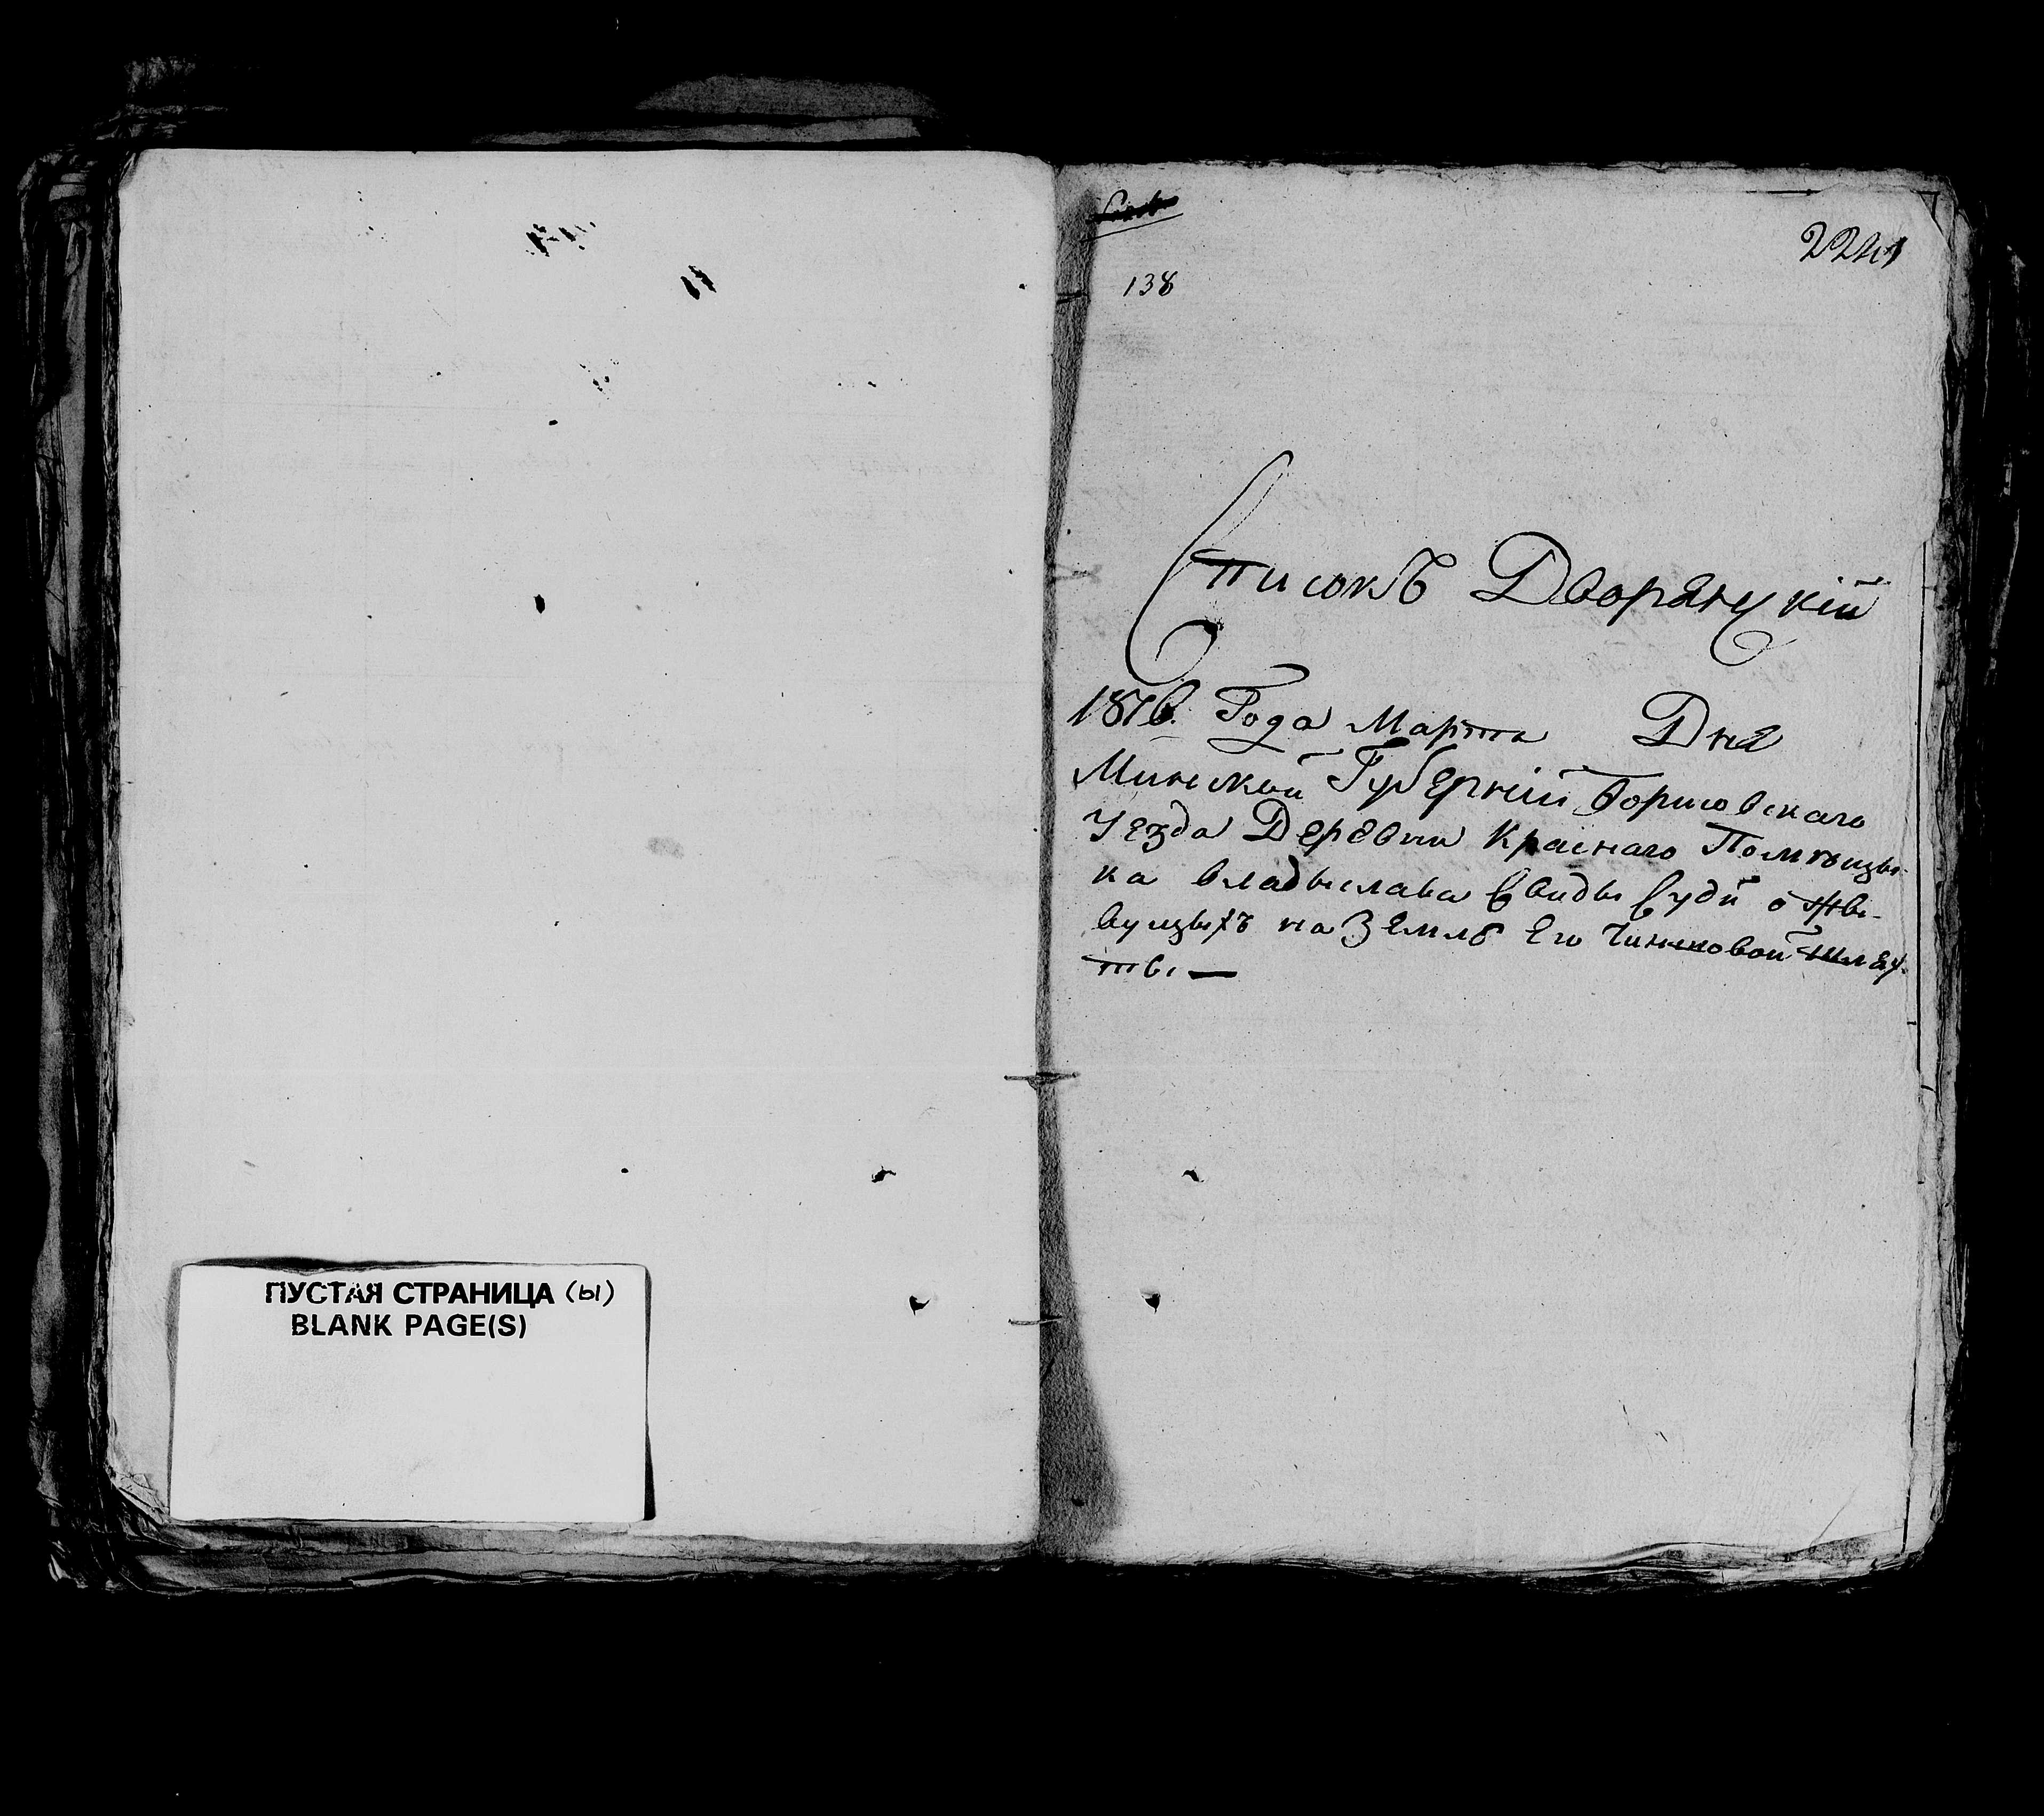 ПУСТАЯ СТРАНИЦА (ы)
BLANK PAGE(S)
138
Списокъ Дворянскій
Года Марта Дня
Минской Губерніи Борисовскаго
Уезда Деревни Краснаго Помѣщы-
ка Владыслава Свиды Судй о жы-
вущыхъ на Землѣ Его Чиншовой Шлях-
ты —